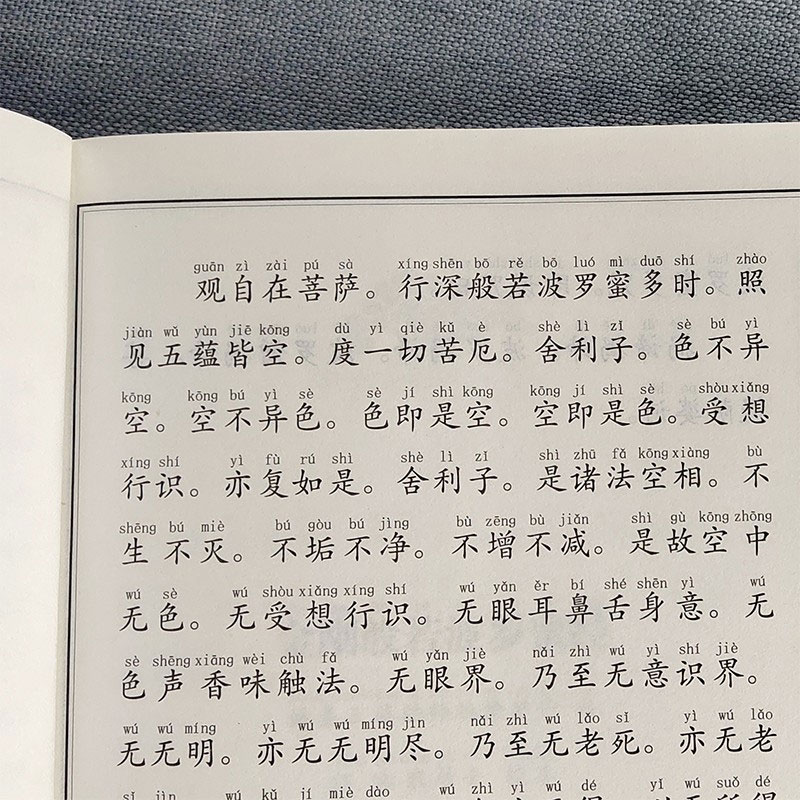 guān zì zài pú sà xíng shēn bō rě bō luó mì duō shí zhào
观自在菩萨。行深般若波罗蜜多时。照
jiàn wǔ yùn jiē kōng dù yì qiè kǔ è shè lì zǐ sè bú yì
见五蕴皆空。度一切苦厄。舍利子。色不异
kōng kōng bú yì sè sè jí shì kōng kōng jí shì sè shòu xiǎng
空。空不异色。色即是空。空即是色。受想
xíng shí yì fù rú shì shè lì zǐ shì zhū fǎ kōng xiàng bù
行识。亦复如是。舍利子。是诸法空相。不
shēng bú miè bú gòu bú jìng bù zēng bù jiǎn shì gù kōng zhōng
生不灭。不垢不净。不增不减。是故空中
wú sè wú shòu xiǎng xíng shí wú yǎn ěr bí shé shēn yì wú
无色。无受想行识。无眼耳鼻舌身意。无
sè shēng xiāng wèi chù fǎ wú yǎn jiè nǎi zhì wú yì shí jiè
色声香味触法。无眼界。乃至无意识界。
wú wú míng yì wú wú míng jìn nǎi zhì wú lǎo sǐ yì wú lǎo
无无明。亦无无明尽。乃至无老死。亦无老
sǐ jìn wú kǔ jí miè dào wú zhì yì wú dé yǐ wú suǒ dé